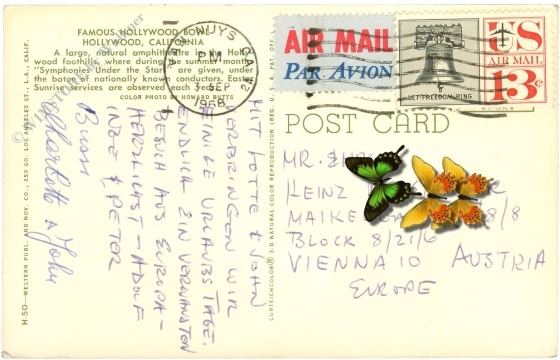 FAMOUS HOLLYWOOD BOWL
HOLLYWOOD, CALIFORNIA
A large, natural amphitheatre in the Hollywood
foothills, where during the summer months
"Symphonies Under the Stars" are given, under
the baton of nationally known conductors. Easter
Sunrise services are observed each year.
COLOR PHOTO BY HOWARD BUTTS
VAN NUYS, CA
PM
3 SEP
1968
AIR MAIL
PAR AVION
LET FREEDOM RING
US
AIR MAIL
13c
POST CARD
MIT LOTTE & JOHN
VERBRINGEN WIR
EINIGE URLAUBSTAGE.
ENDLICH EIN VERWANDTEN
BESUCH AUS EUROPA -
HERZLICHST - ADOLF
INGE & PETER
Bussi
Charlotte & John
MR.
HEINZ
BLOCK 8/21/6
VIENNA 10 AUSTRIA
EUROPE
H-50—WESTERN PUBL. AND NOV. CO., 259 SO. LOS ANGELES ST. L.A., CALIF.
CURTEICHCOLOR® 3-D NATURAL COLOR REPRODUCTION (REG. U.S.A. PAT. OFF.)